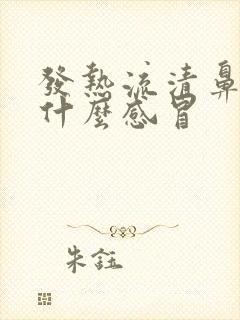 發熱流清鼻
什麼感冒
朱鈺